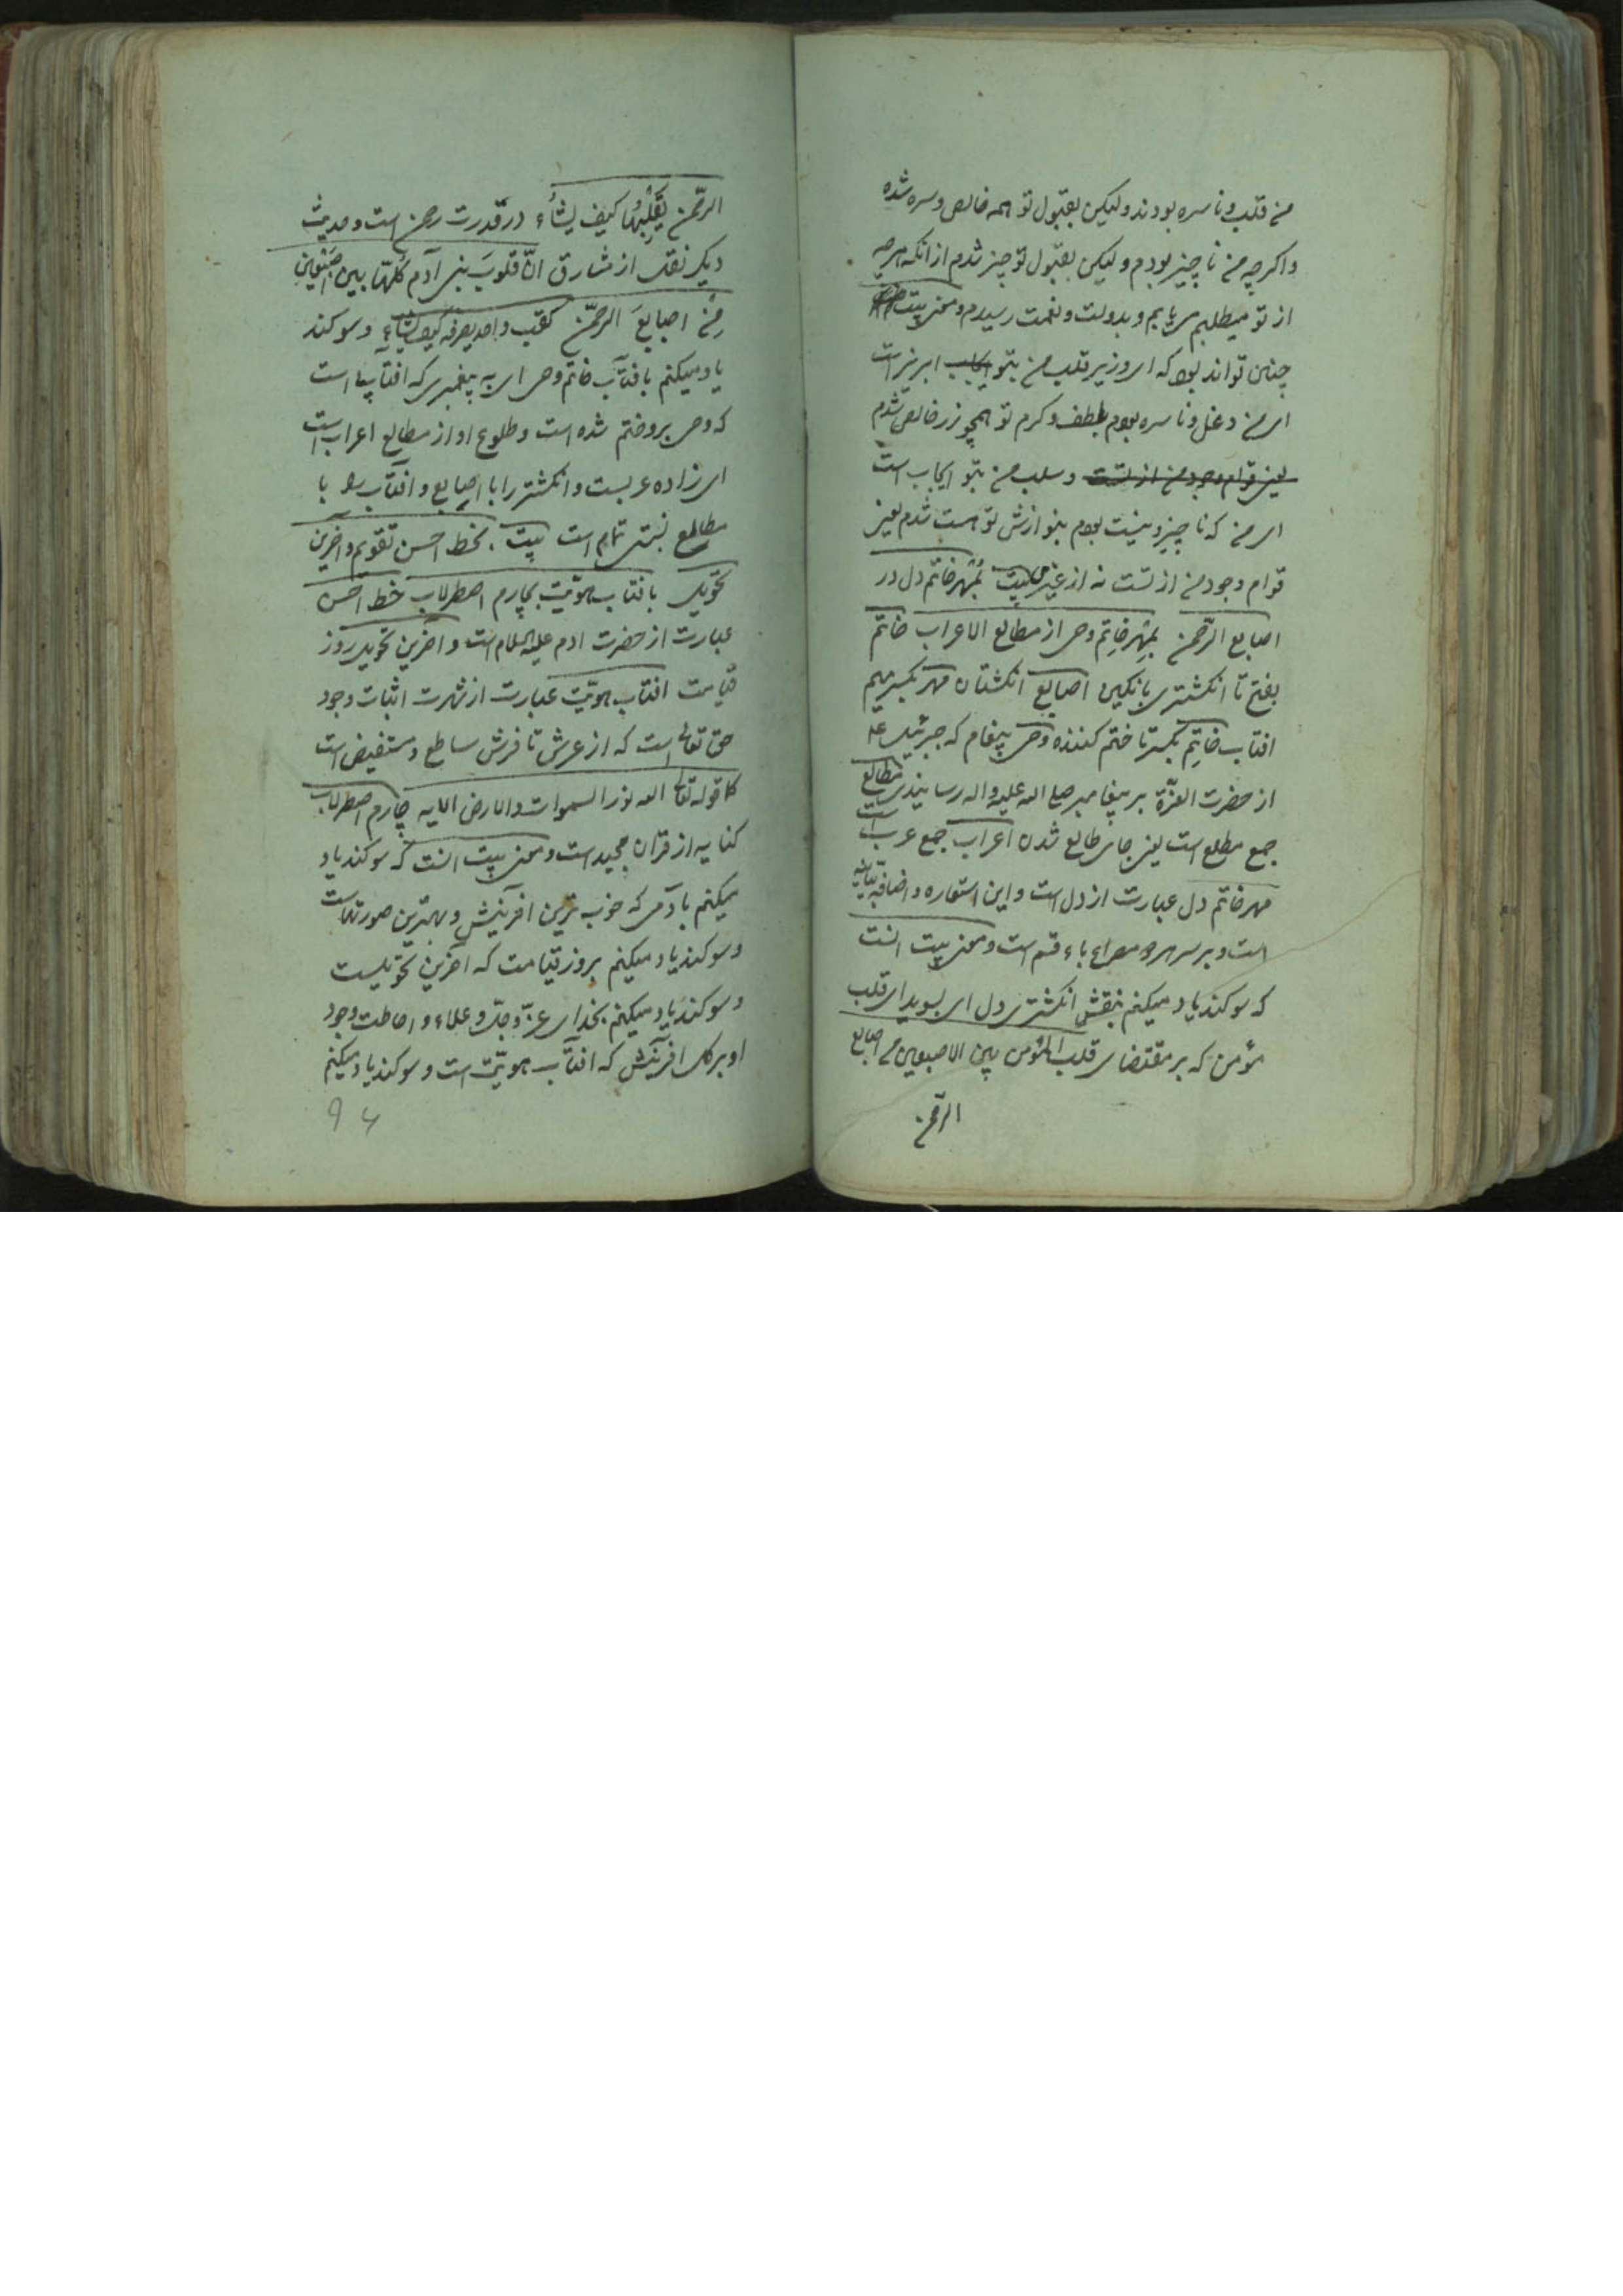 من قلب و ناسره بودند و لیکن بقبول تو همه خالص و سره شده
و اکرچه من ناچیز بودم و لیکن بقبول تو چیز شدم از انکه هرچه
از تو میطلبم می یابم و بدولت و نعمت رسیدم و معنی بیت
چنین تواند بود که ای وزیر قلب من بتو ابریز است
ای من دغل و ناسره بودم بلطف و کرم تو همچو زر خالص شدم
یعنی قوام وجود من از تست و سلب من بتو ایجاب است
ای من که ناچیز و نیست بودم بنوازش تو هست شدم یعنی
قوام وجود من از تست نه از غیر بیت بمهر خاتم دل در
اصابع الرّحمن بمهر خاتم وحی از مطالع الاعراب خاتم
بفتح تا انکشتری با نکین اصابع انکشتان مهر بکسر میم
افتاب خاتِم بکسر تا ختم کننده وحی پیغام که جبرئیل ع
از حضرت العزّة بر پیغامبر صلی الله علیه واله رسانیدی مطالع
جمع مطلع است یعنی جای طالع شدن اعراب جمع عرب است
مهر خاتم دل عبارت از دل است و این استعاره و اضافه بیانیه
است و بر سر هر دو مصراع باء قسم است و معنی بیت انست
که سوکند یاد میکنم بنقش انکشتری دل ای بسویدای قلب
مؤمن که بر مقتضای قلب المؤمن بین الاصبعین من اصابع
الرّحمن
الرّحمن یقلّبها کیف یشاء در قدرت رحمن است و حدیث
دیکر نقل از مشارق انّ قلوبَ بنی آدم کلّها بین اصبعین
مِن اصابعَ الرحمّن کقلب واحد یصرفه کیف یشاء و سوکند
یاد میکنم بافتاب خاتم وحی ای به پیغمبری که افتاب است
که وحی برو ختم شده است و طلوع او از مطالع اعراب است
ای زاده عربست و انکشتر را با اصابع و افتاب را با
مطالع نسبتی تمام است بیت بخط احسن تقویم و اخرین
تحویل بافتاب هویّت بچارم اصطرلاب خط احسن
عبارت از حضرت ادم علیه السلام است و اخرین تحویل روز
قیامت افتاب هویّت عبارت از شهرت اثبات وجود
حق تعالی است که از عرش تا فرش ساطع و مستفیض است
کما قوله تعالی الله نور السموات والارض الایه چارم اصطرلاب
کنایه از قران مجید است و معنی بیت انست که سوکند یاد
میکنم بادمی که خوب ترین افرینش و بهترین صورتهاست
و سوکند یاد میکنم بروز قیامت که آخرین تحویلست
و سوکند یاد میکنم بخدای عزّ وجلّ و علاء و احاطت وجود
او بر کل افرینش که افتاب هویّت است و سوکند یاد میکنم
۹۴